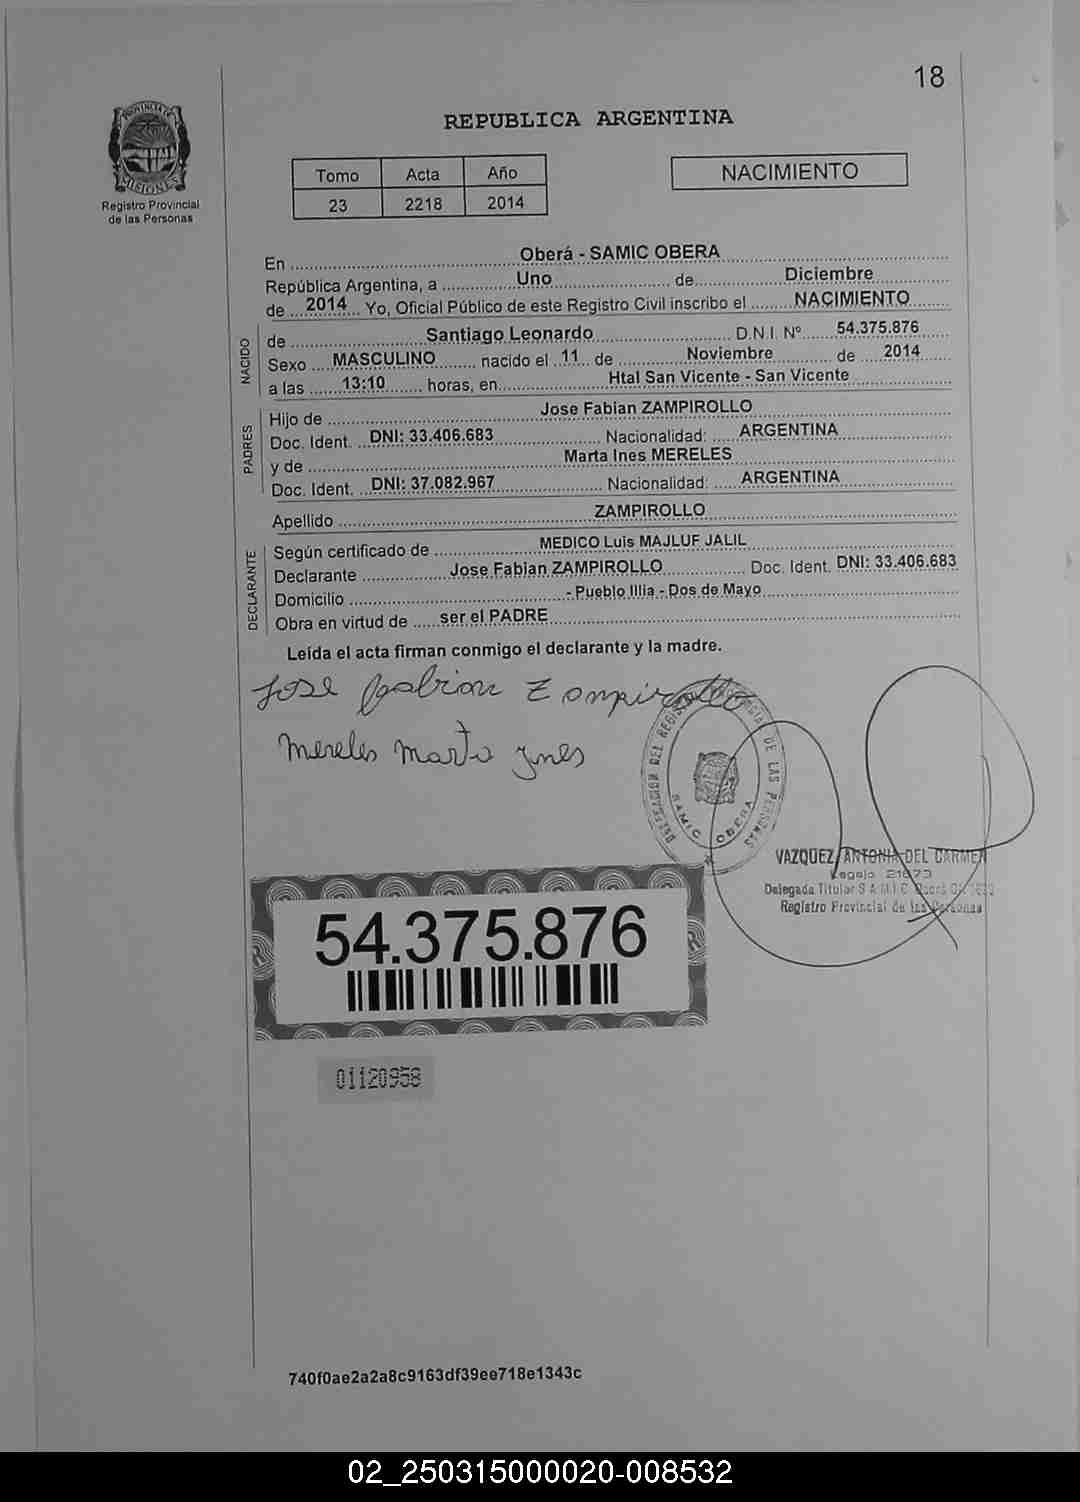 18
PROVINCIA DE
MISIONES
Registro Provincial
de las Personas
REPUBLICA ARGENTINA
Tomo Acta Año
23 2218 2014
NACIMIENTO
En Oberá - SAMIC OBERA
República Argentina, a Uno de Diciembre
de 2014 Yo, Oficial Público de este Registro Civil inscribo el NACIMIENTO
NACIDO
de Santiago Leonardo D.N.I. Nº 54.375.876
Sexo MASCULINO nacido el 11 de Noviembre de 2014
a las 13:10 horas, en Htal San Vicente - San Vicente
PADRES
Hijo de Jose Fabian ZAMPIROLLO
Doc. Ident. DNI: 33.406.683 Nacionalidad: ARGENTINA
y de Marta Ines MERELES
Doc. Ident. DNI: 37.082.967 Nacionalidad: ARGENTINA
Apellido ZAMPIROLLO
DECLARANTE
Según certificado de MEDICO Luis MAJLUF JALIL
Declarante Jose Fabian ZAMPIROLLO Doc. Ident. DNI: 33.406.683
Domicilio - Pueblo Illia - Dos de Mayo
Obra en virtud de ser el PADRE
Leída el acta firman conmigo el declarante y la madre.
Jose fabian Zampirollo
Mereles Marta ynes
DELEGACION DEL REGISTRO PROVINCIAL DE LAS PERSONAS
SAMIC OBERA
VAZQUEZ, ANTONIA DEL CARMEN
Legajo 21873
Delegada Titular S.A.M.I.C. Oberá
Registro Provincial de las Personas
54.375.876
01120958
740f0ae2a2a8c9163df39ee718e1343c
02_250315000020-008532